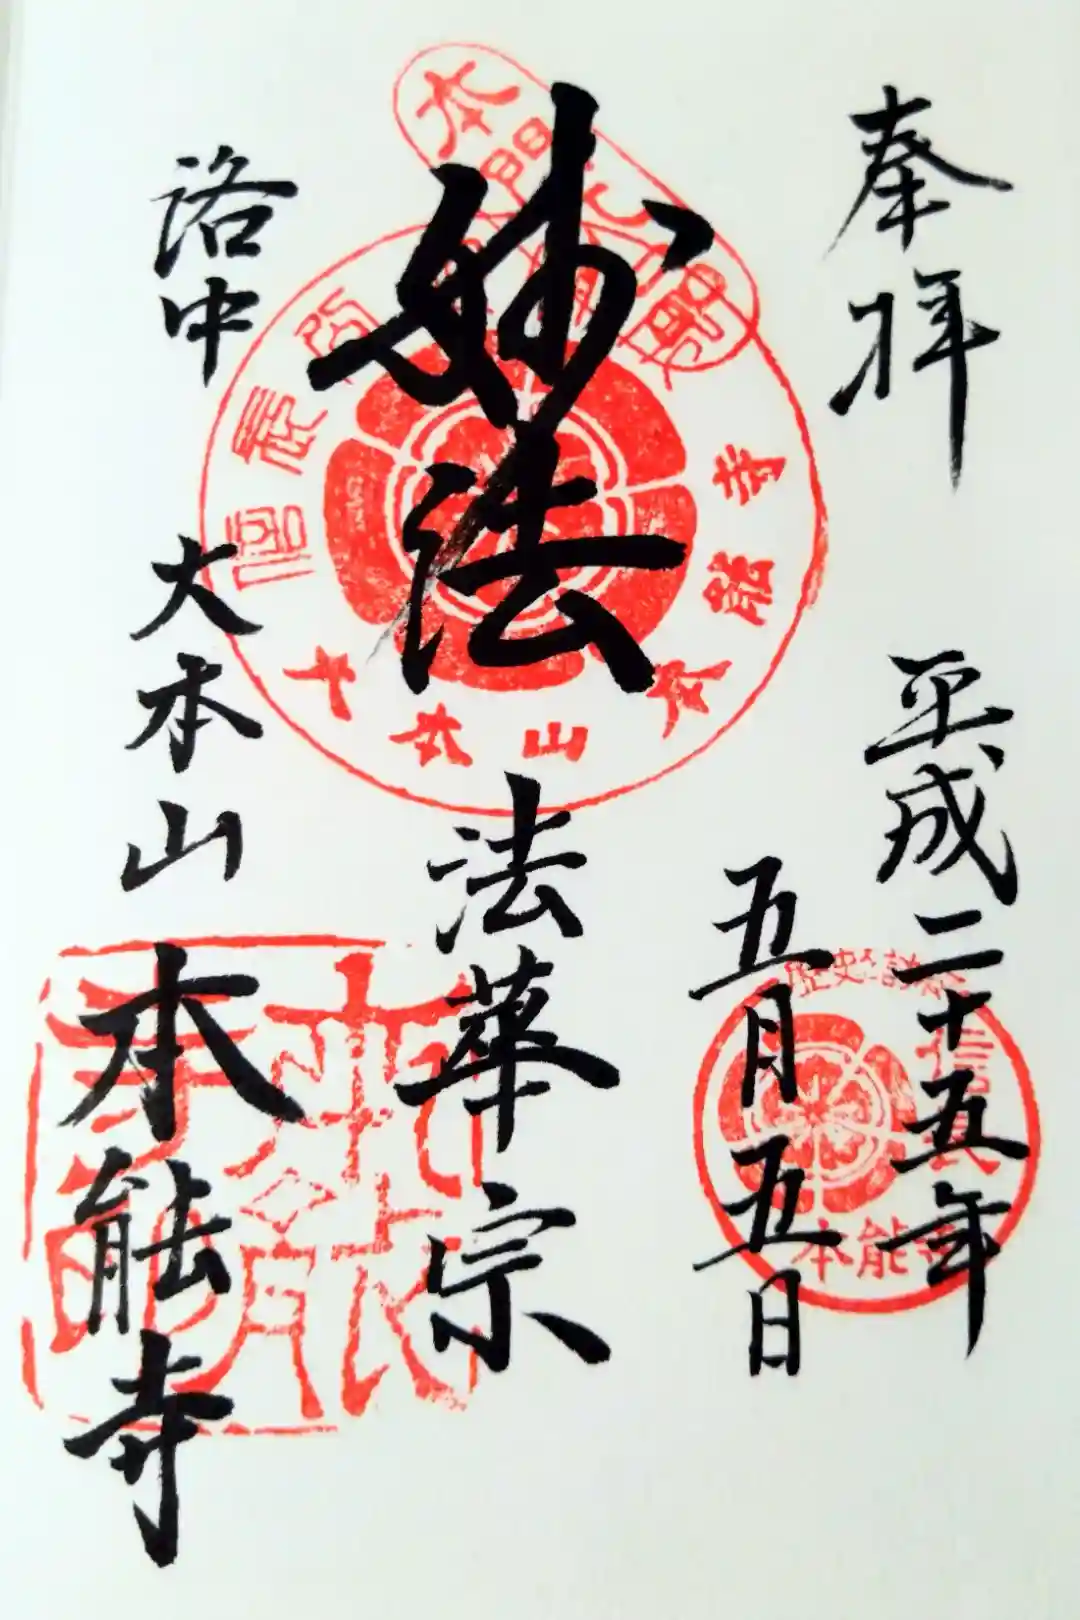 奉拝
平成二十五年
五月五日
妙法
法華宗
洛中
大本山
本能寺
本能寺
本能寺